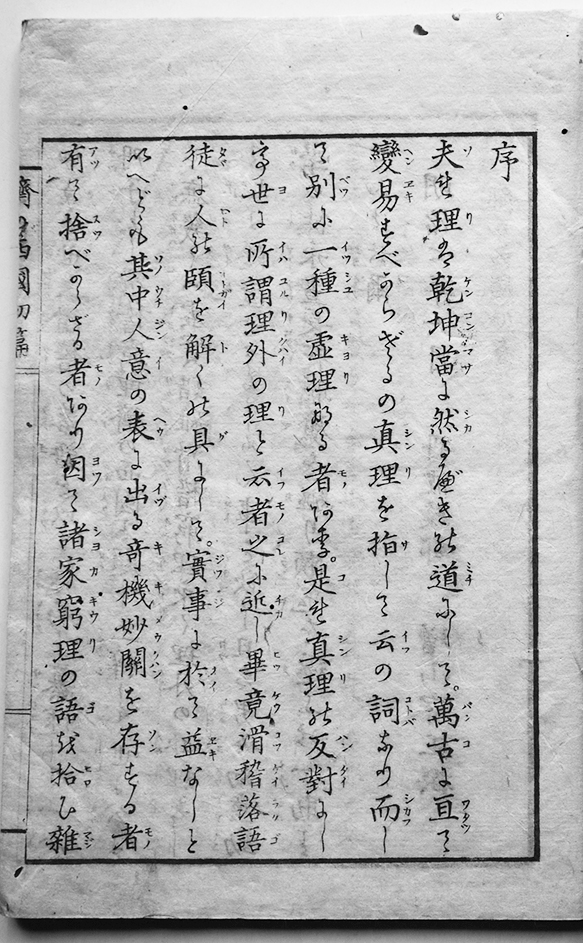 序
夫レ理は乾坤當に然るべきの道にして。萬古に亘て
變易すべからざるの真理を指して云の詞なり而し
て別に一種の虚理なる者あり。是れ真理の反對にし
て世に所謂理外の理と云者之に近し畢竟滑稽落語
徒に人の頤を解くの具にして。實事に於て益なしと
いへども其中人意の表に出る奇機妙關を存する者
有て捨べからざる者あり因て諸家窮理の語を拾ひ雑